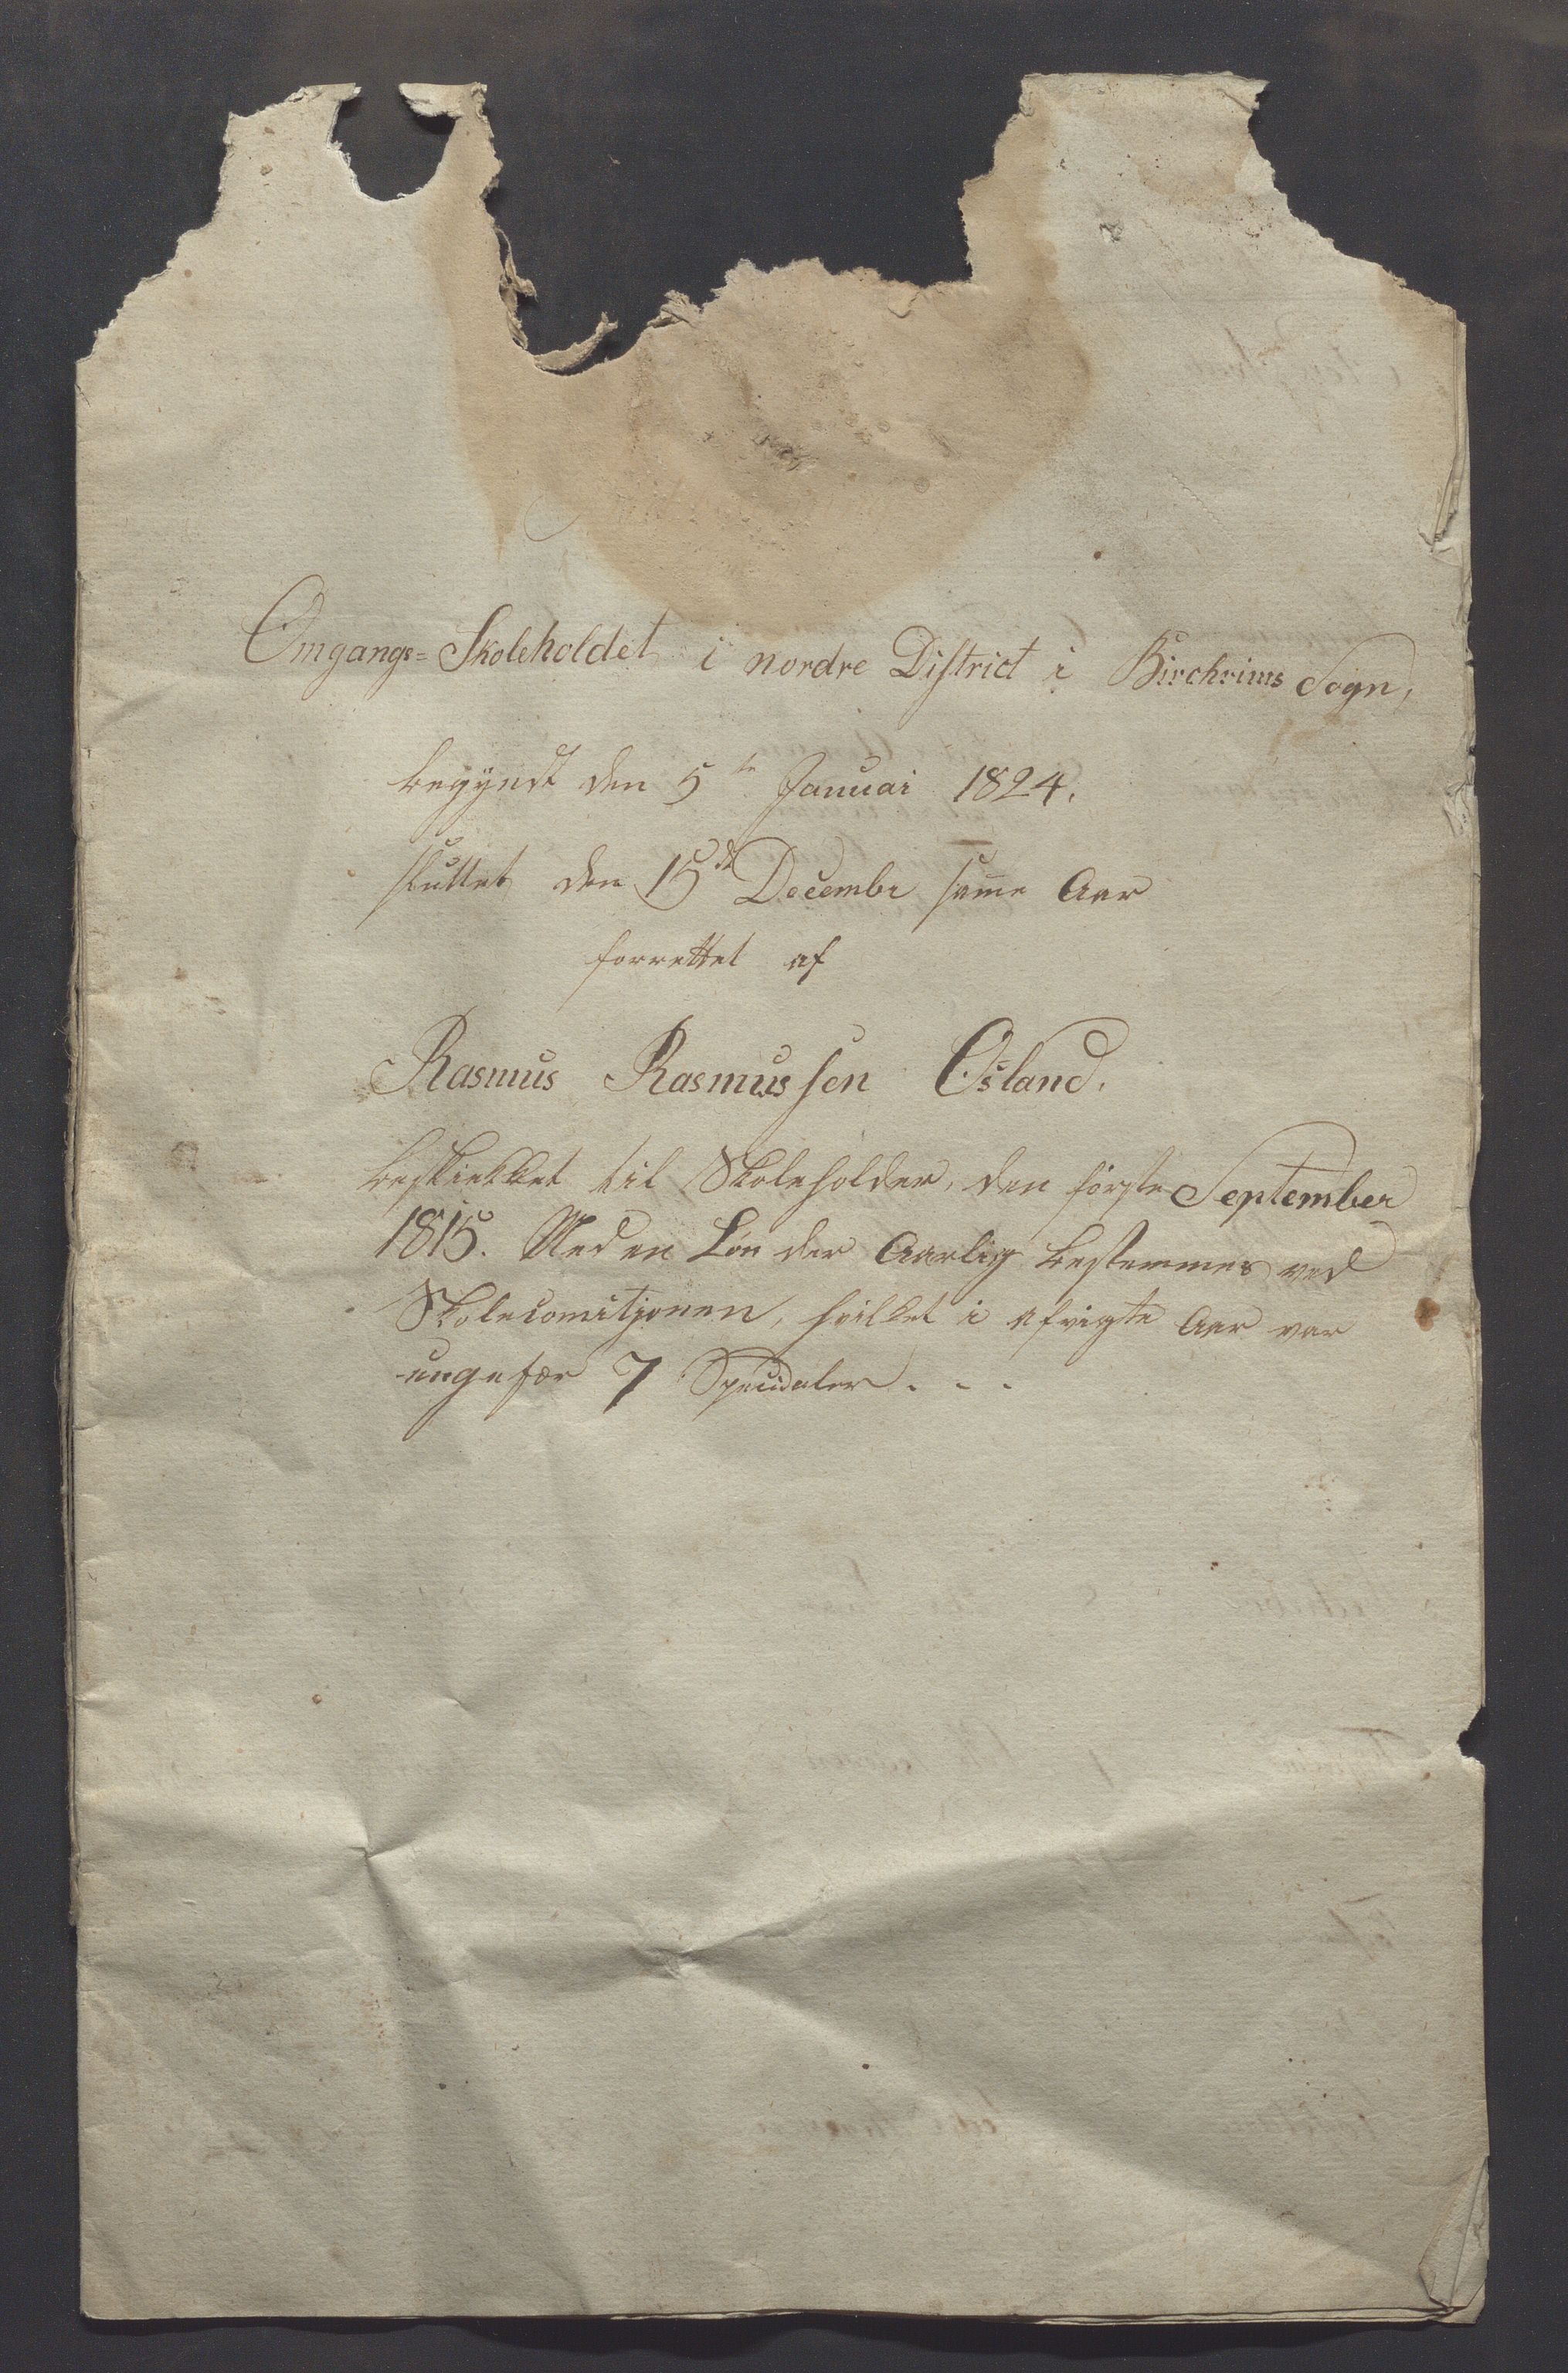 Omgangs=Skoleholdet i nordre District i Birchrims Sogn,
begyndt den 5te Januai 1824.
sluttet den 15de Decembr same Aar
forrettet af
Rasmus Rasmussen Osland.
beskikket til Skoleholder, den förste September
1815. Med en Lön der Aarlig bestemmes ved
Skolecomitjonen, hvilket i afvigte Aar var
ungefær 7 Specidaler . - -